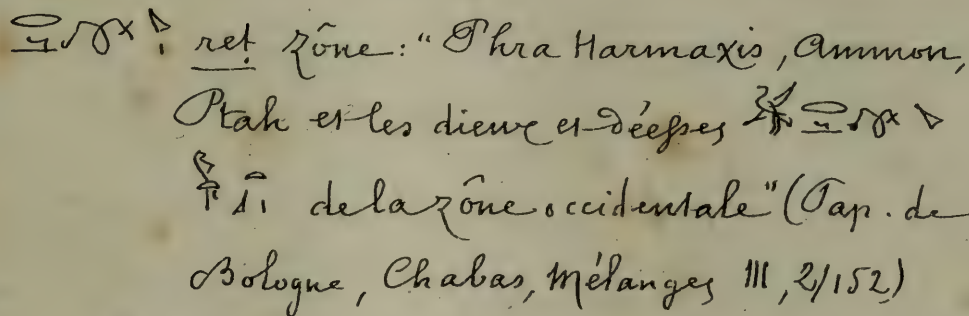 ret zône: "Phra Harmaxis, Ammon,
Ptah et les dieux et déesses
de la zône occidentale" (Pap. de
Bologne, Chabas, Mélanges III, 2/152)